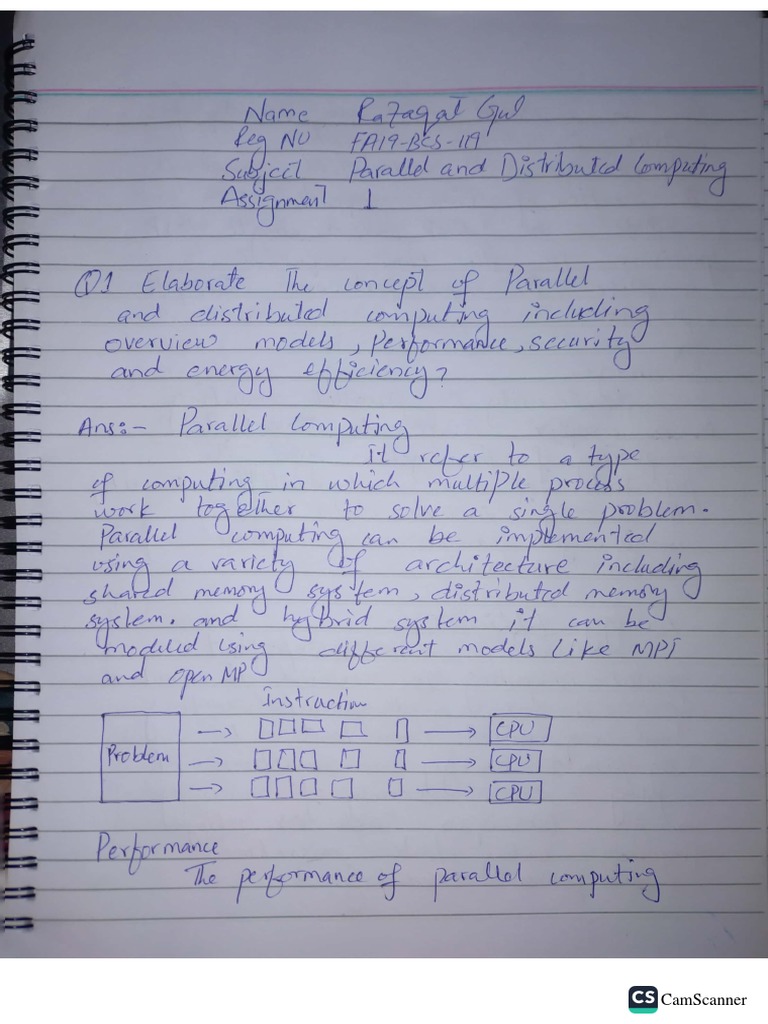 Name Rafaqat Gul
Reg NO FA19-BCS-119
Subject Parallel and Distributed Computing
Assignment 1
Q1 Elaborate The concept of Parallel
and distributed computing including
overview models, performance, security
and energy efficiency?
Ans:- Parallel Computing
it refer to a type
of computing in which multiple process
work together to solve a single problem.
Parallel computing can be implemented
using a variety of architecture including
shared memory system, distributed memory
system. and hybrid system it can be
modeled using different models like MPI
and open MP
Instruction
Problem
CPU
CPU
CPU
Performance
The performance of parallel computing
CS CamScanner